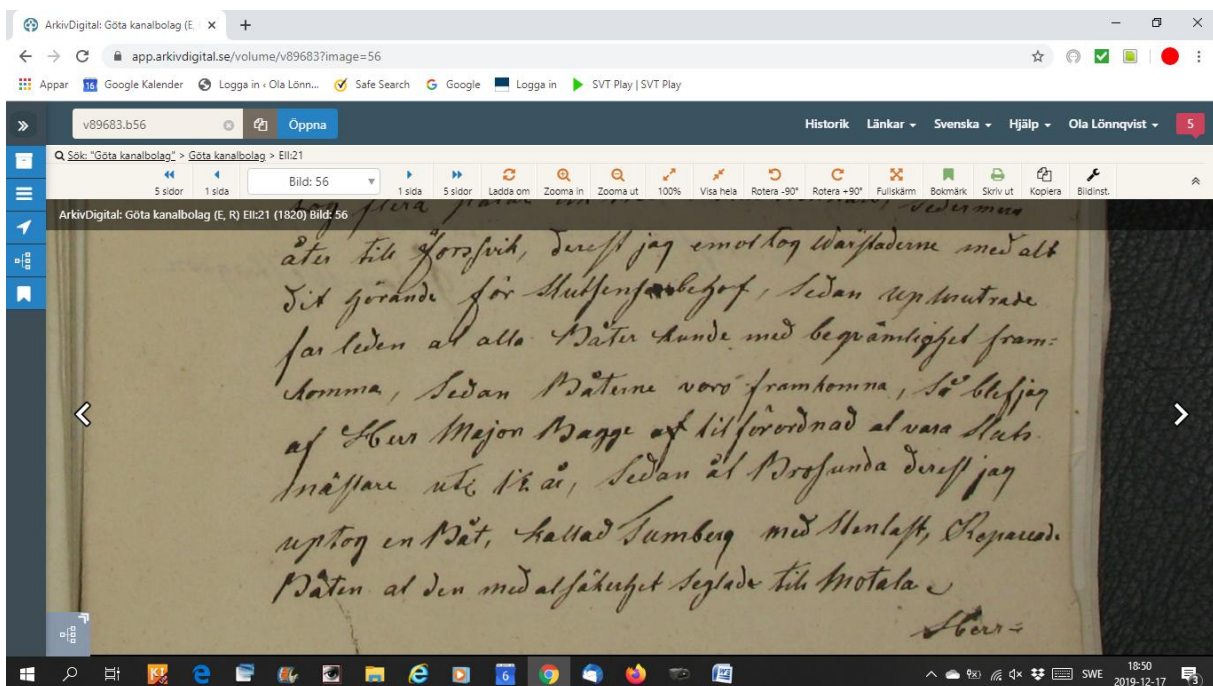 ArkivDigital: Göta kanalbolag (E,
app.arkivdigital.se/volume/v89683?image=56
Appar Google Kalender Logga in ‹ Ola Lönn... Safe Search Google Logga in SVT Play | SVT Play
v89683.b56 Öppna Historik Länkar Svenska Hjälp Ola Lönnqvist 5
Sök: "Göta kanalbolag" > Göta kanalbolag > EII:21
5 sidor 1 sida Bild: 56 1 sida 5 sidor Ladda om Zooma in Zooma ut 100% Visa hela Rotera -90° Rotera +90° Fullskärm Bokmärk Skriv ut Kopiera Bildinst.
ArkivDigital: Göta kanalbolag (E, R) EII:21 (1820) Bild: 56
tog flera sedermera
åter till Forsvik, derest jag emottog med alt
dit hörande för behof, sedan
farleden at alla Båter kunde med beqvämlighet fram=
komma, sedan Båterne voro framkomna, så blef jag
af Herr Major Bagge af tilförordnad at vara Sluts
mästare uti 1½ år, sedan åt Brosunda derest jag
uptog en Båt, kallad Sumberg med Stenlast, Reparerade
Båten at den med al säkerhet seglade till Motala
Herr=
18:50
SWE
2019-12-17